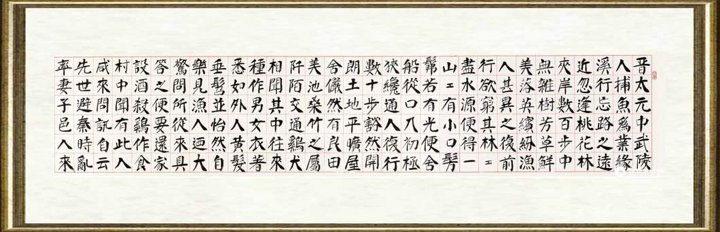 晉太元中武陵
人捕魚為業緣
溪行忘路之遠
近忽逢桃花林
夾岸數百步中
無雜樹芳草鮮
美落英繽紛漁
人甚異之復前
行欲窮其林〻
盡水源便得一
山〻有小口髣
髴若有光便舍
船從口入初極
狹纔通人復行
數十步豁然開
朗土地平曠屋
舍儼然有良田
美池桑竹之屬
阡陌交通鷄犬
相聞其中往來
種作男女衣著
悉如外人黃髮
垂髫並怡然自
樂見漁人迺大
驚問所從來具
答之便要還家
設酒殺鷄作食
村中聞有此人
咸來問訊自云
先世避秦時亂
率妻子邑人來